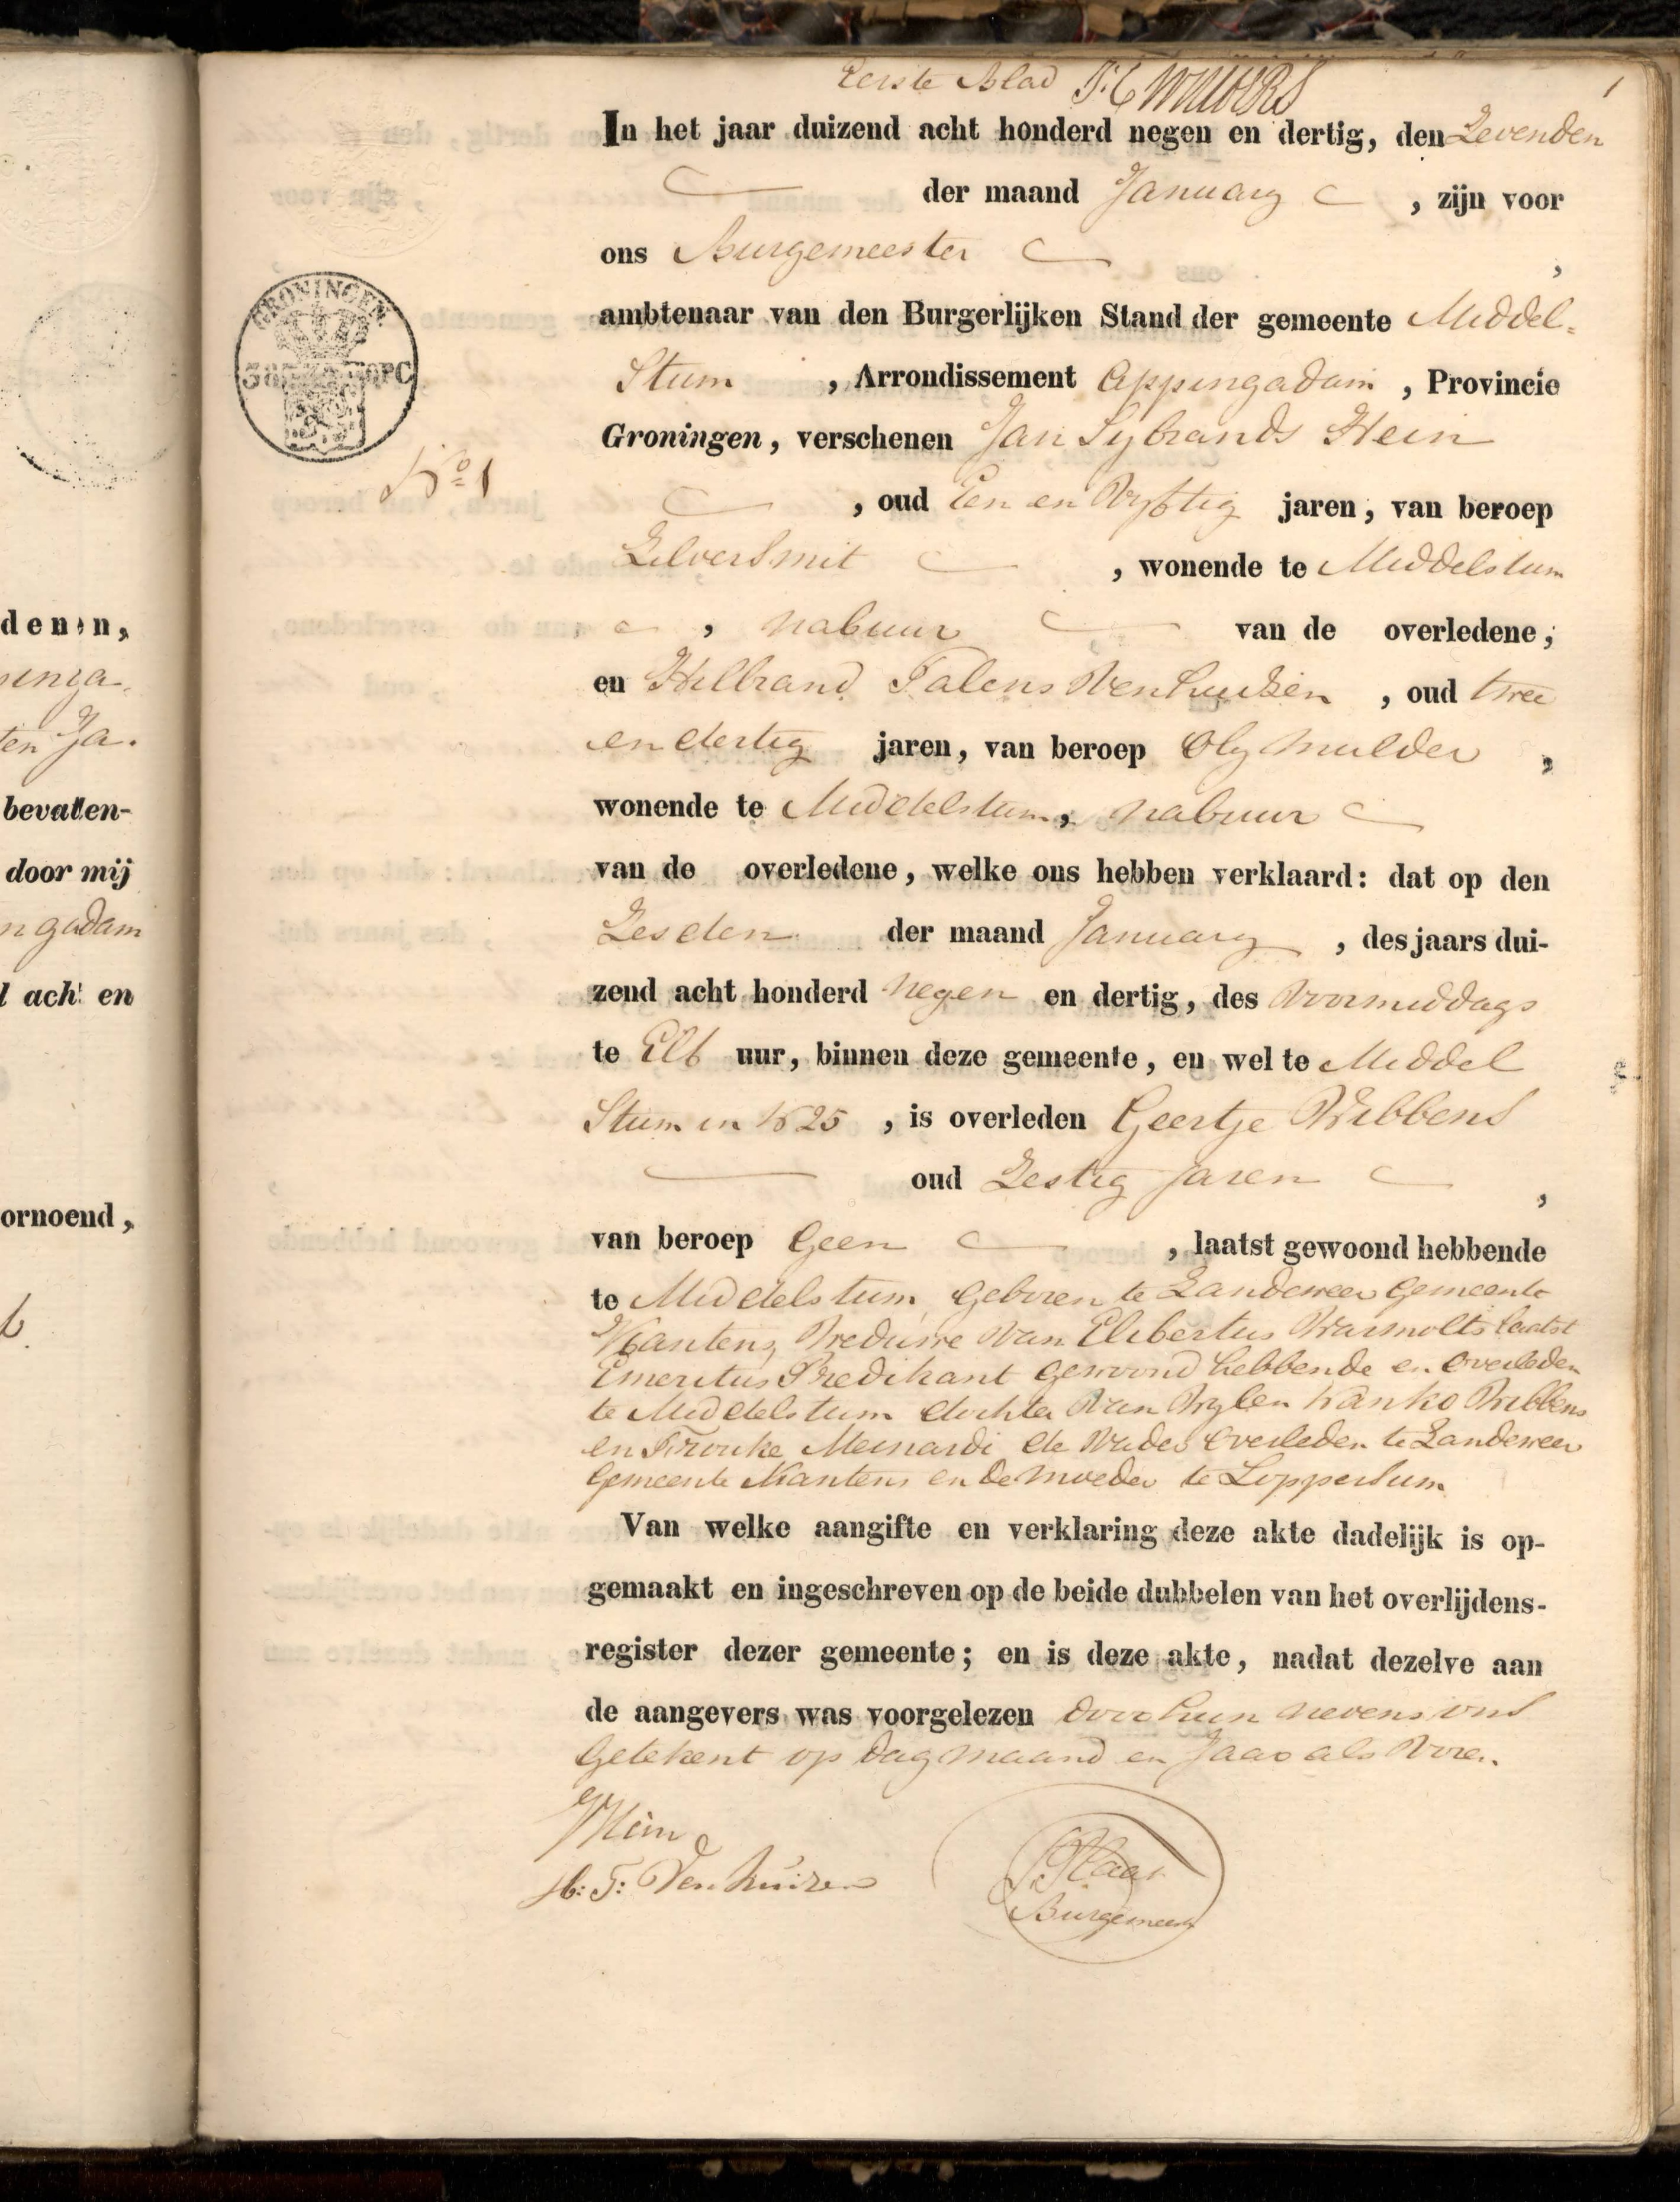 denen,
ten Ja.
bevatten-
door mij
ngadam
l acht en
ornoend,
Eerste Blad
1
In het jaar duizend acht honderd negen en dertig, den Zevenden
der maand January , zijn voor
ons Burgemeester ,
ambtenaar van den Burgerlijken Stand der gemeente Middel-
Stum , Arrondissement Appingadam , Provincie
Groningen, verschenen Jan Sybrands Hein
GRONINGEN
No 1
, oud Een en Vyftig jaren, van beroep
Zilversmit , wonende te Middelstum
, nabuur van de overledene,
en Hilbrand Talens Venhuisen , oud twee
en dertig jaren, van beroep Oly mulder ,
wonende te Middelstum, nabuur
van de overledene, welke ons hebben verklaard: dat op den
Zesden der maand January , des jaars dui-
zend acht honderd negen en dertig, des Voormiddags
te Elf uur, binnen deze gemeente, en wel te Middel
Stum in N625 , is overleden Geertje Wibbens
oud Zestig Jaren ,
van beroep Geen , laatst gewoond hebbende
te Middelstum geboren te Zandeweer Gemeente
Kantens Weduwe van Elibertus Warmolts laatst
Emeritus Predikant gewoond hebbende en overleden
te Middelstum dochter van Wylen Wibbens
en Frouke Meinardi de Vader overleden te Zandeweer
Gemeente Kantens en de moeder te Loppersum
Van welke aangifte en verklaring deze akte dadelijk is op-
gemaakt en ingeschreven op de beide dubbelen van het overlijdens-
register dezer gemeente; en is deze akte, nadat dezelve aan
de aangevers was voorgelezen door hun nevens ons
Getekent op dag maand en Jaar als Voren
Hein
H: T: Venhuizen
Burgemeester